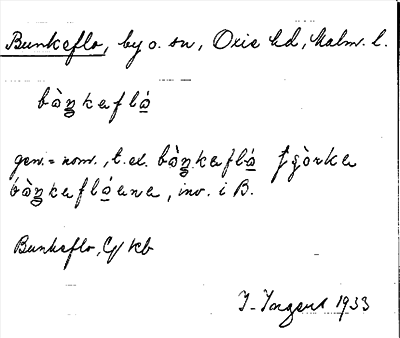 Bunkeflo, by o. sn, Oxie hd, Malm. l.
bòŋkaflǫ́
gen. = nom., t. ex. bòŋkaflǫ́ çòrka
bòŋkaflǫ́ana, inv. i B.
Bunkeflo, Gf kb
I. Ingers 1933